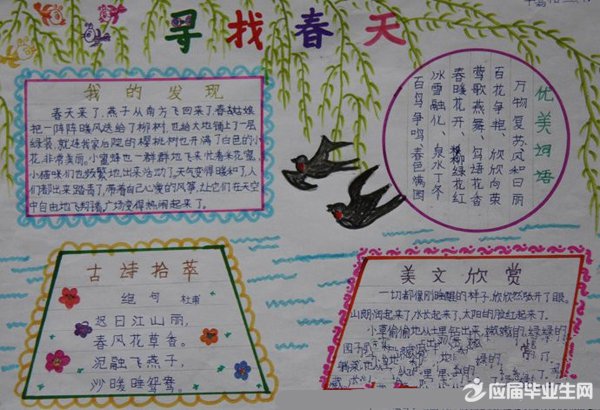 寻找春天
我的发现
春天来了,燕子从南方飞回来了,春姑娘
把一阵阵暖风送给了柳树,也给大地铺上了一层
绿装,就连我家后院的樱桃树也开满了白色的小
花,非常美丽。小蜜蜂也一群群地飞来忙着采花蜜,
小猫咪们也频繁地出来活动了,天气变得暖和了,人
们都出来踏青了,带着自己心爱的风筝,让它们在天空
中自由地飞翔着广场变得热闹起来了。
优美词语
万物复苏 风和日丽
百花争艳、欣欣向荣
莺歌燕舞、鸟语花香
春暖花开、柳绿花红
冰雪融化、泉水丁冬
百鸟争鸣、春色满园
古诗拾萃
绝句 杜甫
迟日江山丽,
春风花草香。
泥融飞燕子,
沙暖睡鸳鸯。
美文欣赏
一切都像刚睡醒的样子,欣欣然张开了眼。
山朗润起来了,水长起来了,太阳的脸红起来了。
小草偷偷地从土里钻出来,嫩嫩的,绿绿的
应届毕业生网